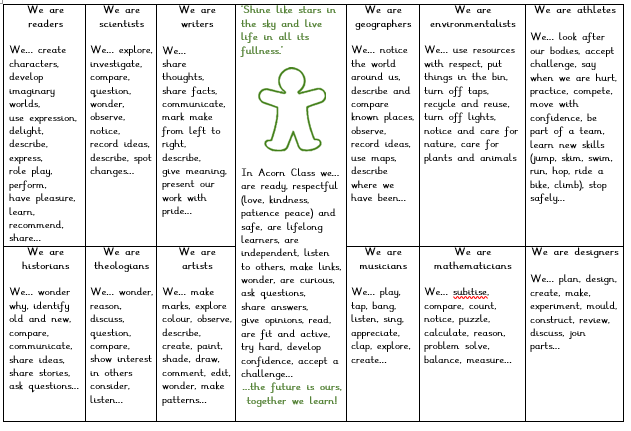 We are
readers
We... create
characters,
develop
imaginary
worlds,
use expression,
delight,
describe,
express,
role play,
perform,
have pleasure,
learn,
recommend,
share...
We are
scientists
We... explore,
investigate,
compare,
question,
wonder,
observe,
notice,
record ideas,
describe, spot
changes...
We are
writers
We...
share
thoughts,
share facts,
communicate,
mark make
from left to
right,
describe,
give meaning,
present our
work with
pride...
'Shine like stars in
the sky and live
life in all its
fullness.'
In Acorn Class we...
are ready, respectful
(love, kindness,
patience peace) and
safe, are lifelong
learners, are
independent, listen
to others, make links,
wonder, are curious,
ask questions,
share answers,
give opinions, read,
are fit and active,
try hard, develop
confidence, accept a
challenge...
...the future is ours,
together we learn!
We are
geographers
We... notice
the world
around us,
describe and
compare
known places,
observe,
record ideas,
use maps,
describe
where we
have been...
We are
environmentalists
We... use resources
with respect, put
things in the bin,
turn off taps,
recycle and reuse,
turn off lights,
notice and care for
nature, care for
plants and animals
We are athletes
We... look after
our bodies, accept
challenge, say
when we are hurt,
practice, compete,
move with
confidence, be
part of a team,
learn new skills
(jump, skim, swim,
run, hop, ride a
bike, climb), stop
safely...
We are
historians
We... wonder
why, identify
old and new,
compare,
communicate,
share ideas,
share stories,
ask questions...
We are
theologians
We... wonder,
reason,
discuss,
question,
compare,
show interest
in others
consider,
listen...
We are
artists
We... make
marks, explore
colour, observe,
describe,
create, paint,
shade, draw,
comment, edit,
wonder, make
patterns...
We are
musicians
We... play,
tap, bang,
listen, sing,
appreciate,
clap, explore,
create...
We are
mathematicians
We... subitise,
compare, count,
notice, puzzle,
calculate, reason,
problem solve,
balance, measure...
We are designers
We... plan, design,
create, make,
experiment, mould,
construct, review,
discuss, join
parts...